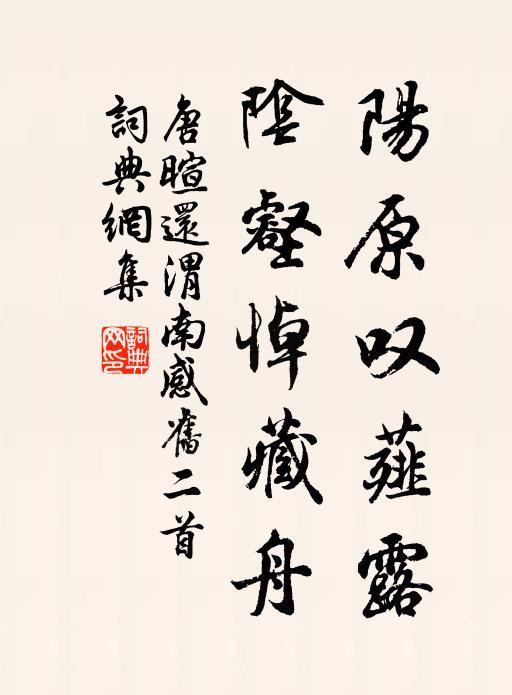 陽原叹薤露
陰壑悼藏舟
唐暄還渭南感舊二首
詞典網集
詞典網印